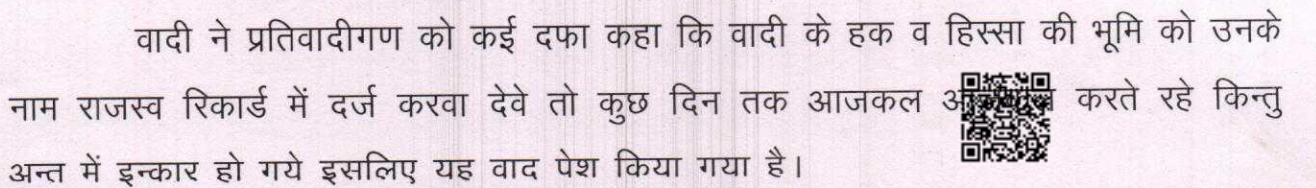 वादी ने प्रतिवादीगण को कई दफा कहा कि वादी के हक व हिस्सा की भूमि को उनके
नाम राजस्व रिकार्ड में दर्ज करवा देवे तो कुछ दिन तक आजकल करते रहे किन्तु
अन्त में इन्कार हो गये इसलिए यह वाद पेश किया गया है।